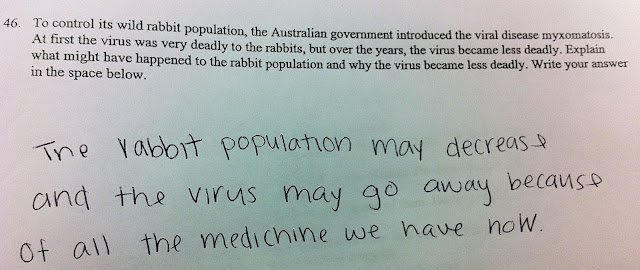 46. To control its wild rabbit population, the Australian government introduced the viral disease myxomatosis.
At first the virus was very deadly to the rabbits, but over the years, the virus became less deadly. Explain
what might have happened to the rabbit population and why the virus became less deadly. Write your answer
in the space below.
The rabbit population may decrease
and the virus may go away because
of all the medichine we have now.